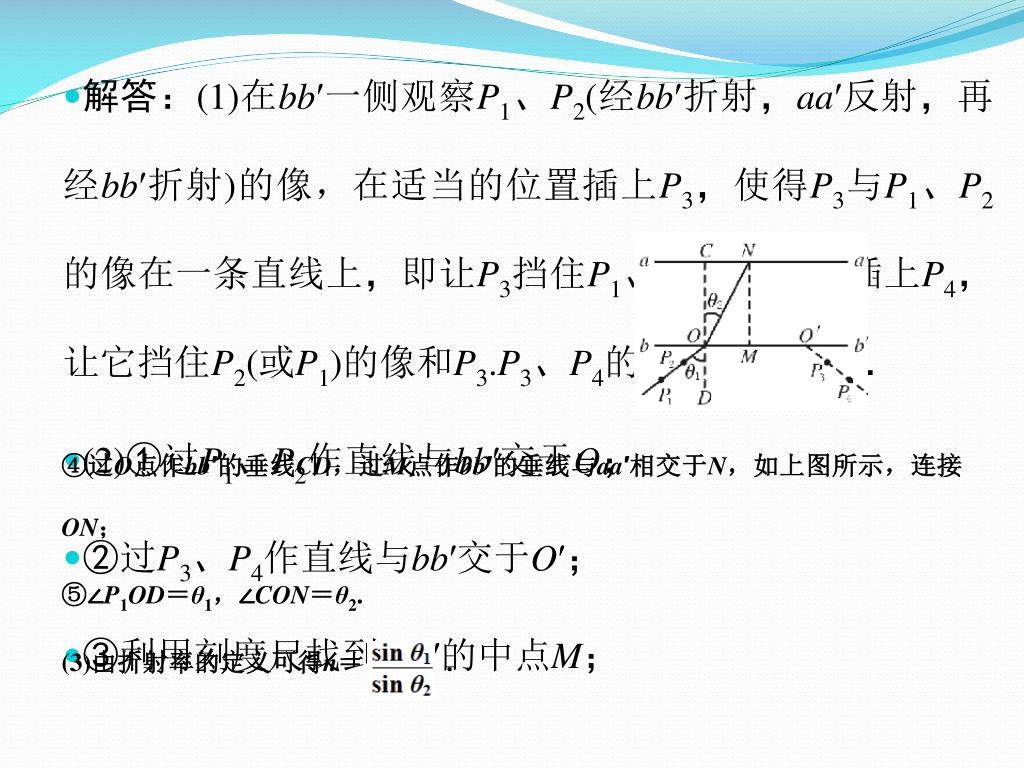 •解答：(1)在bb′一侧观察P1、P2(经bb′折射，aa′反射，再
经bb′折射)的像，在适当的位置插上P3，使得P3与P1、P2
的像在一条直线上，即让P3挡住P1、
插上P4，
让它挡住P2(或P1)的像和P3.P3、P4的
.
C N
a a
θ2
b O M O′ b′
P2 θ1 P3
P1 D P4
•(2)①过P1、P2作直线与bb′交于O；
④过O点作bb′的垂线CD，过M点作bb′的垂线与aa′相交于N，如上图所示，连接
ON；
•②过P3、P4作直线与bb′交于O′；
⑤∠P1OD＝θ1，∠CON＝θ2.
•③利用刻度尺找到 ′的中点M；
(3)由折射率的定义可得n＝ sin θ1 / sin θ2 .